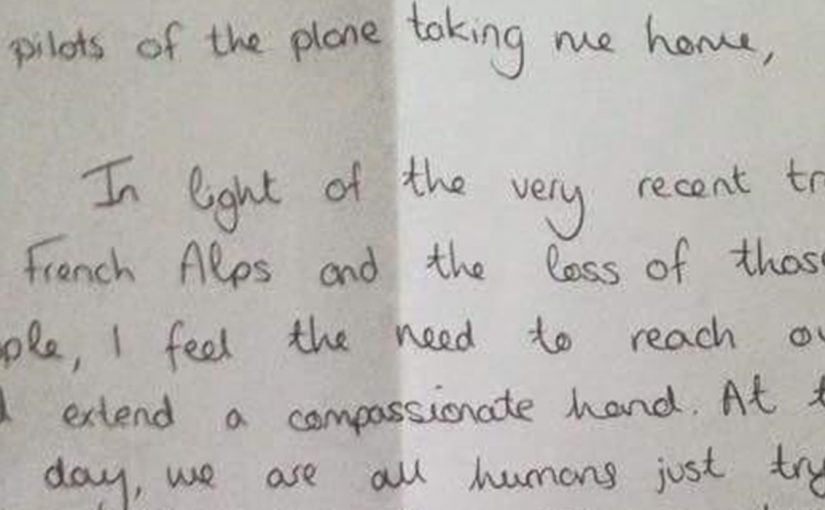 pilots of the plane taking me home,
In light of the very recent tr
French Alps and the loss of thos
ple, I feel the need to reach ou
d extend a compassionate hand. At t
day, we are all humans just try